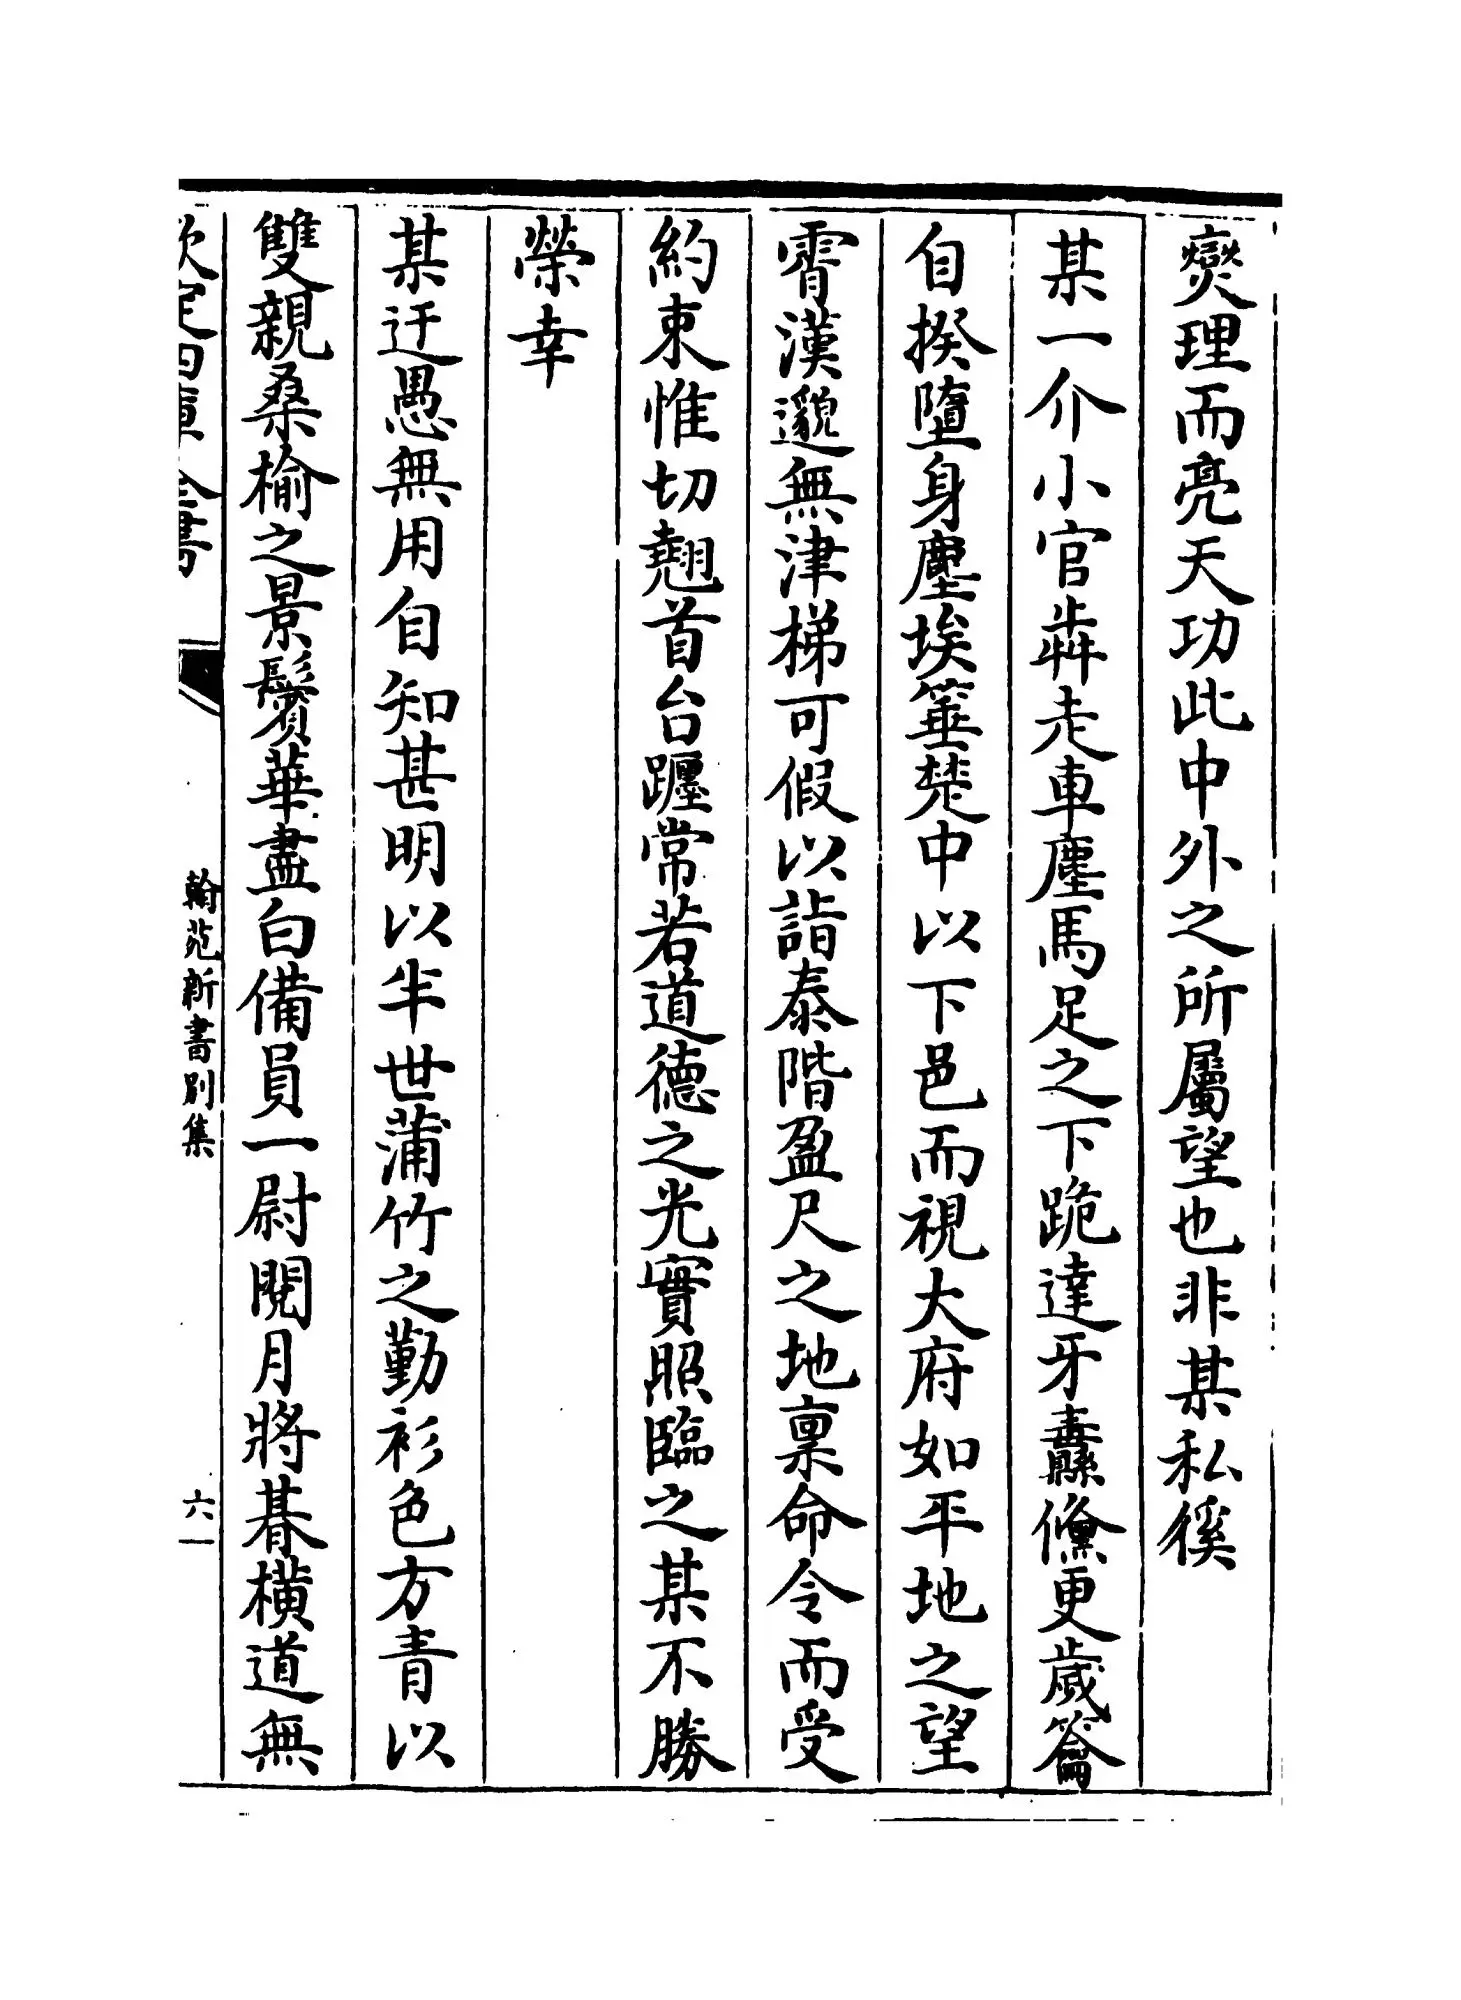 燮理而亮天功此中外之所屬望也非某私徯
某一介小官犇走車塵馬足之下跪達牙纛儵更歲籥
自揆墮身塵埃箠楚中以下邑而視大府如平地之望
霄漢邈無津梯可假以詣泰階盈尺之地禀命令而受
約束惟切翹首台躔常若道德之光實照臨之某不勝
榮幸
某迂愚無用自知甚明以半世蒲竹之勤衫色方青以
雙親桑榆之景鬢華盡白備員一尉閱月將朞橫道無
欽定四庫全書
翰苑新書别集
六一